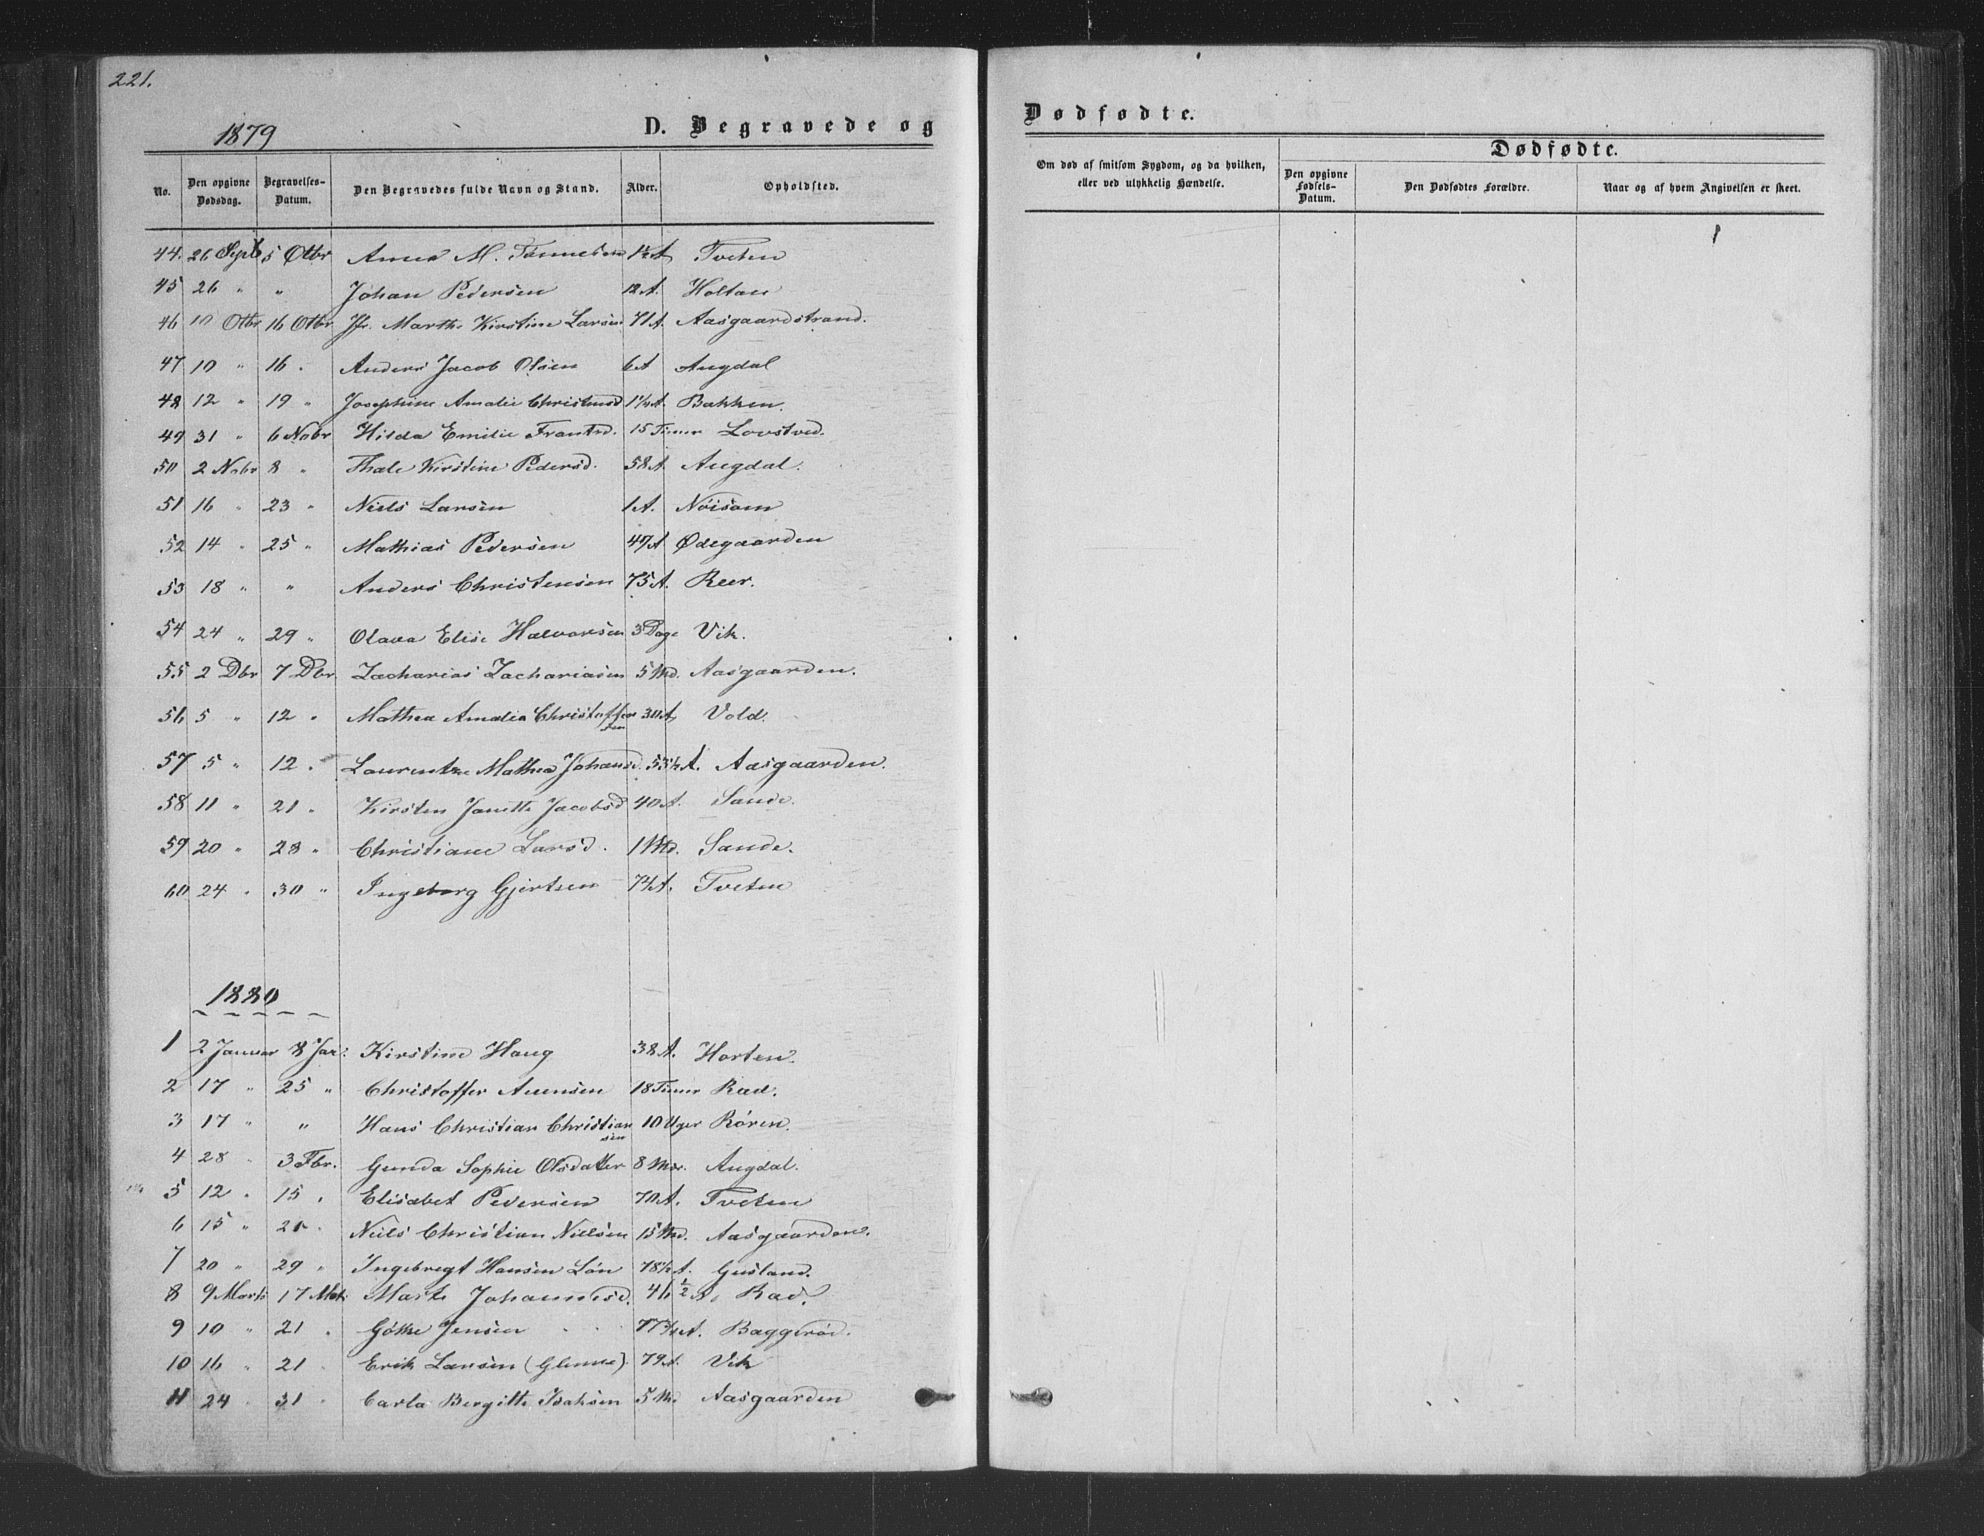 221.
1879
D. Begravede og
No. Den opgivne Dødsdag. Begravelses-Datum. Den Begravedes fulde Navn og Stand. Alder. Opholdsted.
44. 26 Sept 5 Otbr Anna M. 1½ A Tveten
45 26 " " Johan Pedersen 12 A. Holtan
46 10 Otbr 16 Otbr Jfr. Marthe Kirstine Larsen 71 A. Aasgaardstrand.
47 10 " 16 " Anders Jacob Olsen 6 A Augdal
48 12 " 19 " Josephine Amalie Christensd A. Bakken.
49 31 " 6 Nobr Hilda Emilie Frantsd. 15 Timer Lovstved.
50 2 Nobr 8 " Thale Kirstine Pedersd. 58 A. Augdal.
51 16 " 23 " Niels Larsen 1 A. Nöisom
52 14 " 25 " Mathias Pedersen 47 A Ødegaarden
53 18 " " Anders Christensen 75 A. Reer.
54 24 " 29 " Olava Elise Halvorsen 3 Dage Vik.
55 2 Dbr 7 Dbr. Zacharias Zachariasen 5 Md. Aasgaarden.
56 5 " 12 " Mathea Amalia Christoffersen 30 A, Vold.
57 5 " 12 " Laurentze Mathea Johansd. 53½ A. Aasgaarden.
58 11 " 21 " Kirsten Janette Jacobsd 40 A. Sande.
59 20 " 28 " Christiane Larsd. 1 Md. Sande.
60 24 " 30 " Ingeborg Gjertsen A. Tveten
1880
1 2 Januar 8 Jar. Kirstine Haug 38 A. Horten.
2 17 " 25 " Christoffer Aunsen 18 Timer Rad.
3 17 " " Hans Christian Christiansen 10 Uger Rören.
4 28 " 3 Fbr. Gunda Sophie Olsdatter 8 Mdr. Augdal.
5 12 " 15 " Elisabet Pedersen 70 A. Tveten
6 15 " 21 " Niels Christian Nielsen 15 Md. Aasgaarden.
7 20 " 29 " Ingebregt Hansen Lön 78½ A. Gusland.
8 9 Marts 17 Mats Marte Johannesd. 46½ A. Rad.
9 10 " 21 " Göthe Jensen 77¾ A. Baggeröd.
10 16 " 21 " Erik Larsen (Glenne). 79 A. Vik
11 24 " 31 " Carla Bergitte Isaksen 5 Md Aasgaarden
Dødfødte.
Om død af smitsom Sygdom, og da hvilken, eller ved ulykkelig Hændelse.
Dødfødte.
Den opgivne Fødsels-Datum. Den Dødfødtes Forældre. Naar og af hvem Angivelsen er skeet.